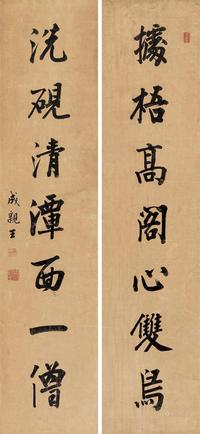 據梧高阁心雙鳥
洗硯清潭西一僧
成親王